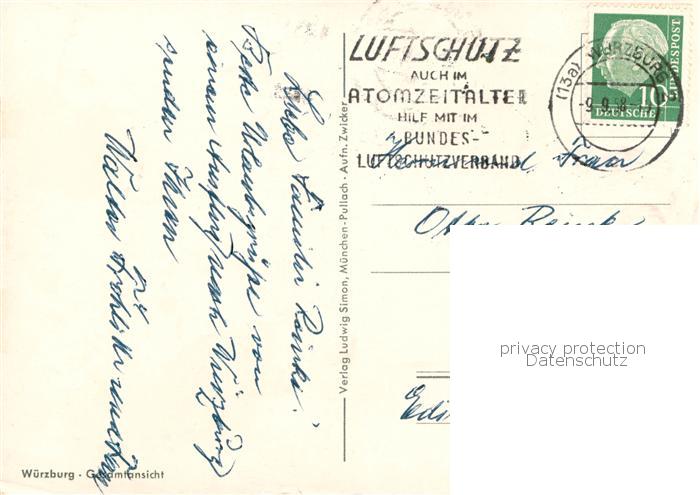 LUFTSCHUTZ
AUCH IM
ATOMZEITALTER
HILF MIT IM
BUNDES-
LUFTSCHUTZVERBAND
(13a) WÜRZBURG
-9.9.58-
10
DEUTSCHE
BUNDESPOST
Liebe Familie Reinke!
Recht Urlaubsgrüße von
einem Ausflug nach Würzburg
senden Ihnen
Walter
Frau
Otto Reinke
privacy protection
Datenschutz
Verlag Ludwig Simon, München-Pullach · Aufn. Zwicker
Würzburg · Gesamtansicht